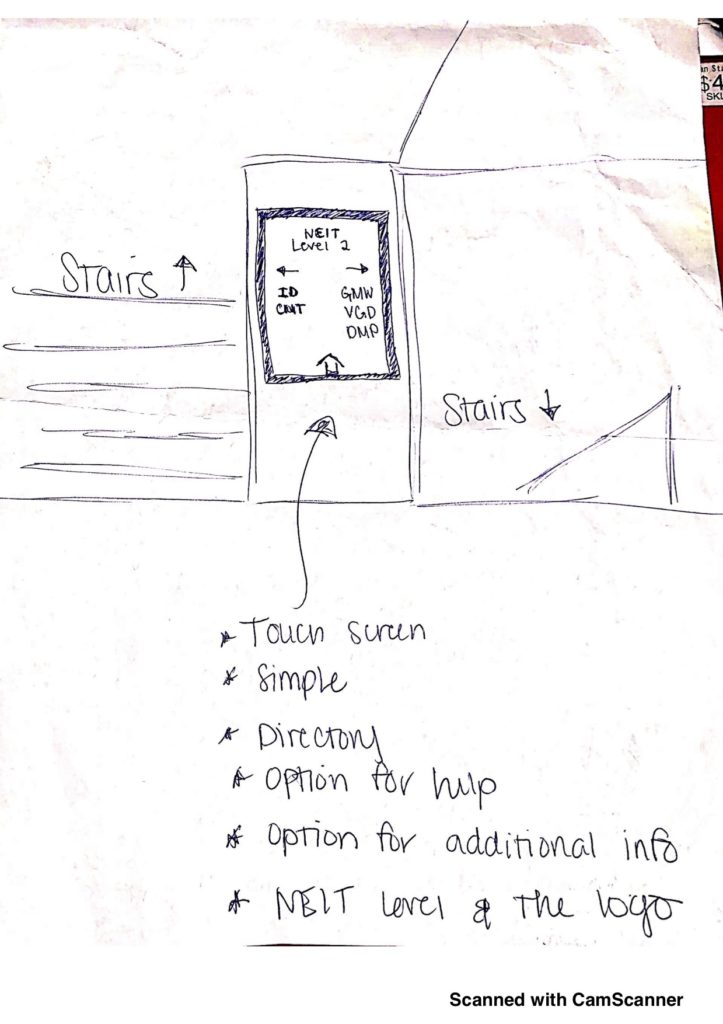 an Sta
$4
SKU
NEIT
Level 2
← →
ID GMW
CMT VGD
DMP
Stairs ↑
Stairs ↓
* Touch screen
* Simple
* Directory
* Option for help
* Option for additional info
* NEIT level & the logo
Scanned with CamScanner